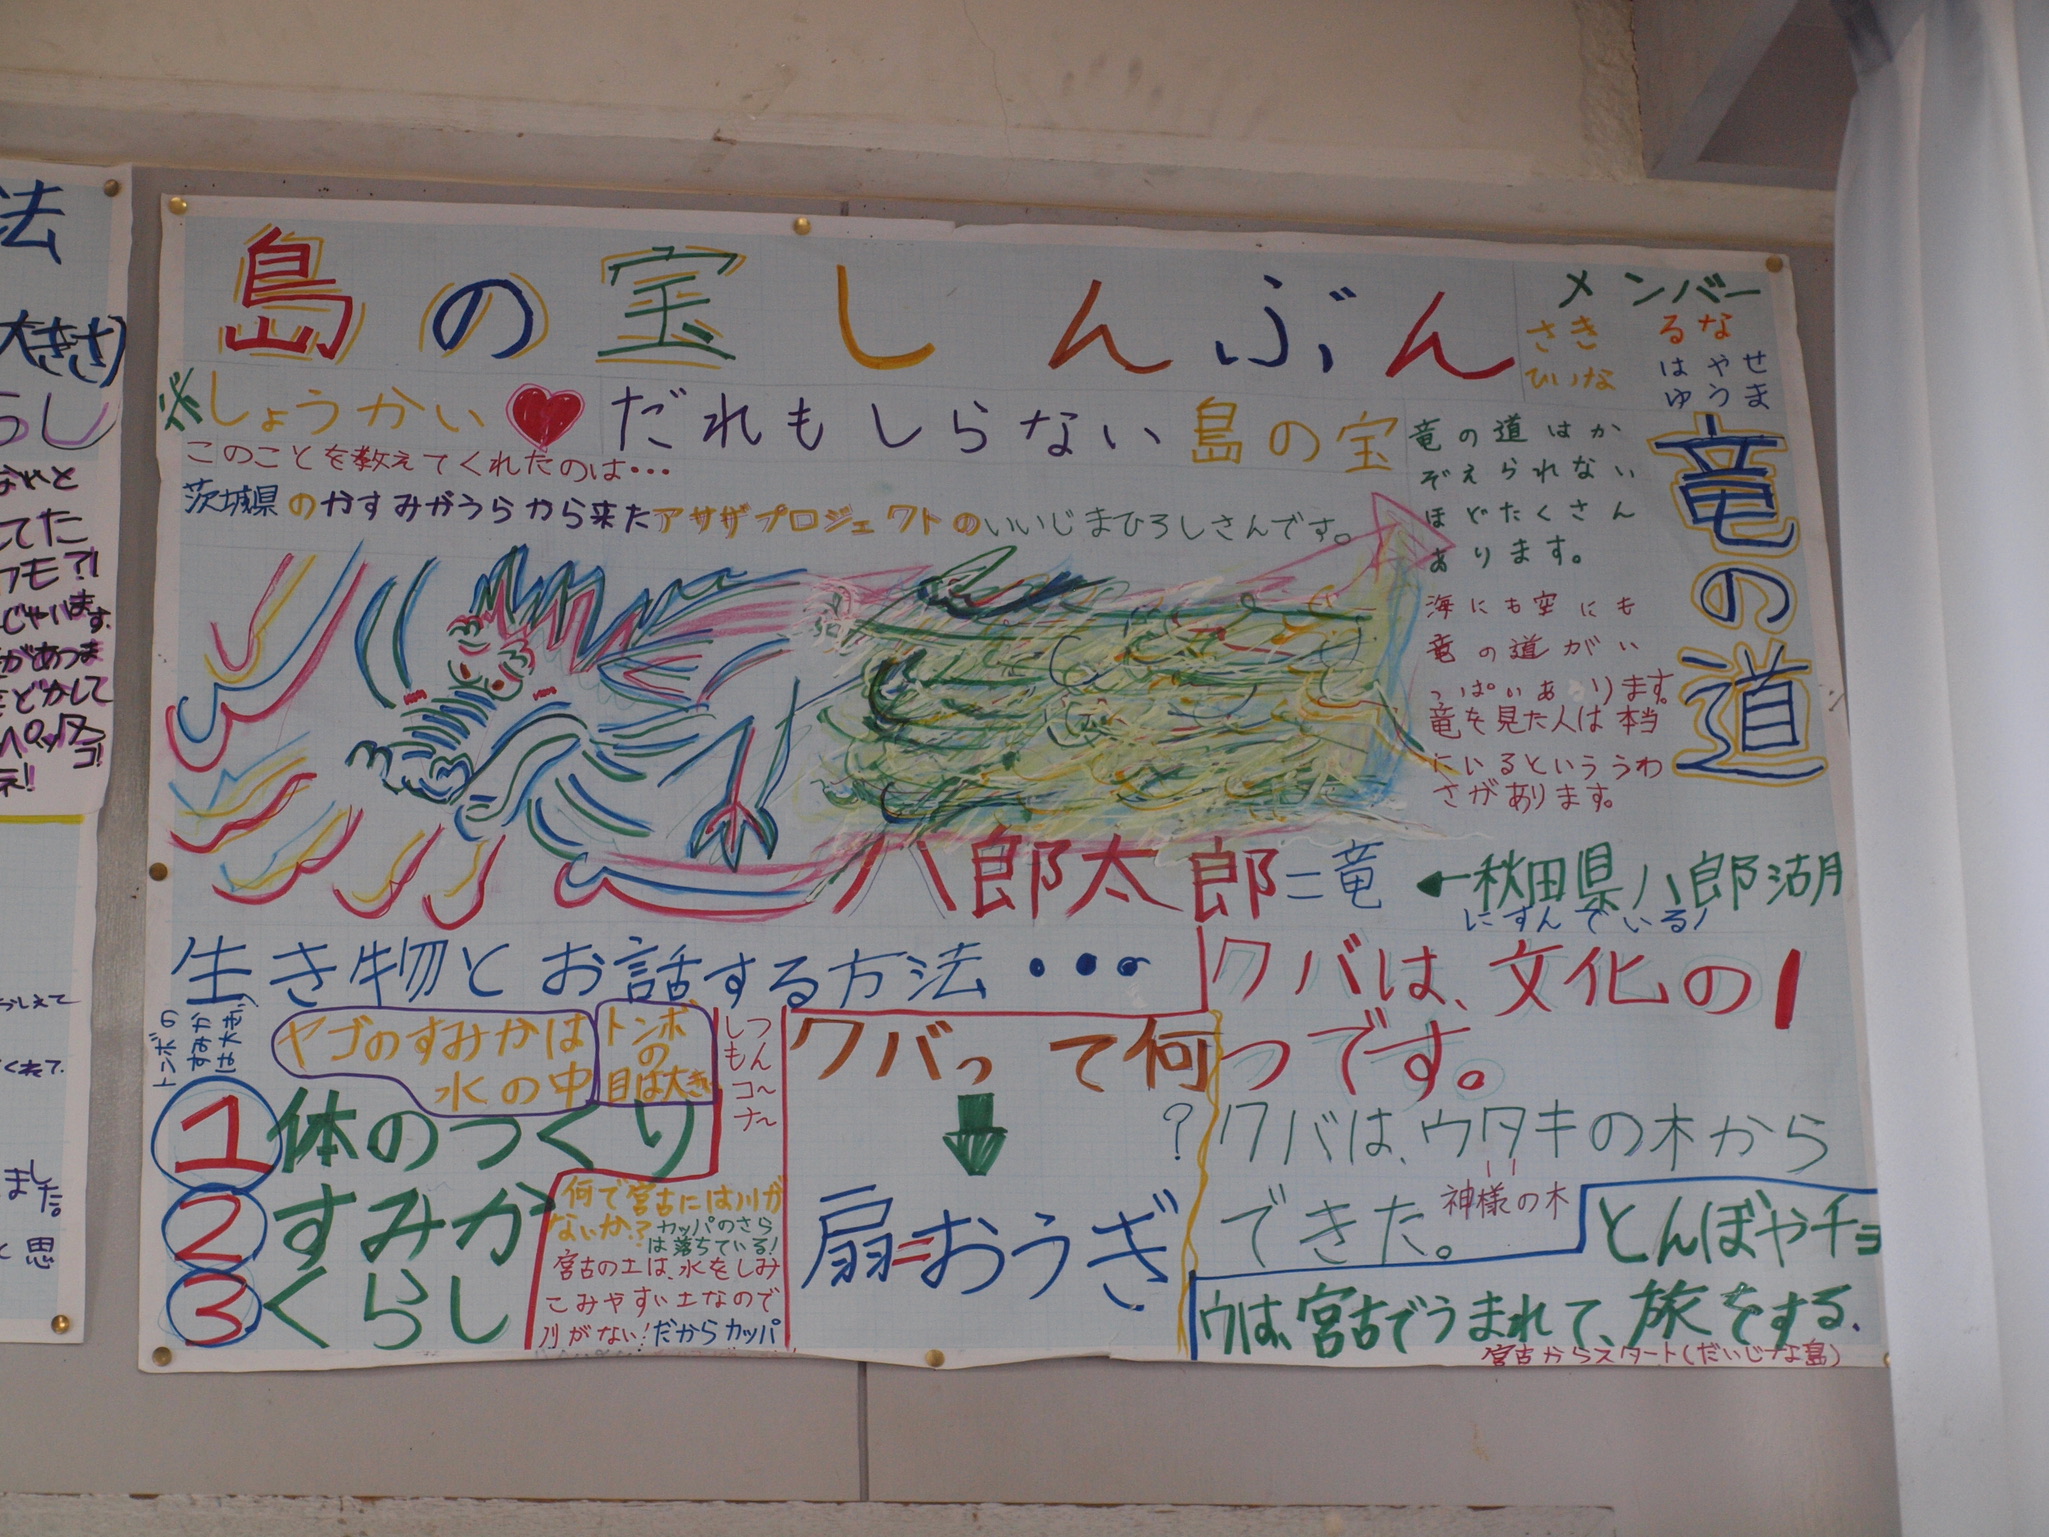 島の宝しんぶん
メンバー
さき るな
ひいな はやせ
ゆうま
しょうかい
だれもしらない島の宝
このことを教えてくれたのは…
茨城県のかすみがうらから来たアサザプロジェクトのいいじまひろしさんです。
竜の道
竜の道はか
ぞえられない
ほどたくさん
あります。
海にも空にも
竜の道がい
っぱいあります。
竜を見た人は本当
にいるといううわ
さがあります。
八郎太郎=竜
←秋田県八郎湖
にすんでいる!
生き物とお話する方法・・・
トンボの
すみか
は大き
ヤゴのすみかは
水の中
トンボ
の
目は大き
しつ
もん
コ〜
ナ〜
1 体のつくり
2 すみか
3 くらし
何で宮古には川が
ないか?カッパのさら
は落ちている!
宮古の土は、水をしみ
こみやすい土なので
川がない!だからカッパ
クバって何
?
扇=おうぎ
クバは、文化の1
つです。
クバは、ウタキの木から
できた。
神様の木
とんぼやチョ
ウは、宮古でうまれて、旅をする.
宮古からスタート(だいじな島)
法
大きさ)
らし
なやと
してた
フモ?!
じゃいます.
があつま
をどかして
おしえて
くれて.
ました。
と思